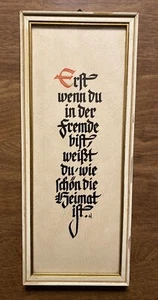 Erst
wenn du
in der
Fremde
bist,
weißt
du wie
schön die
Heimat
ist.